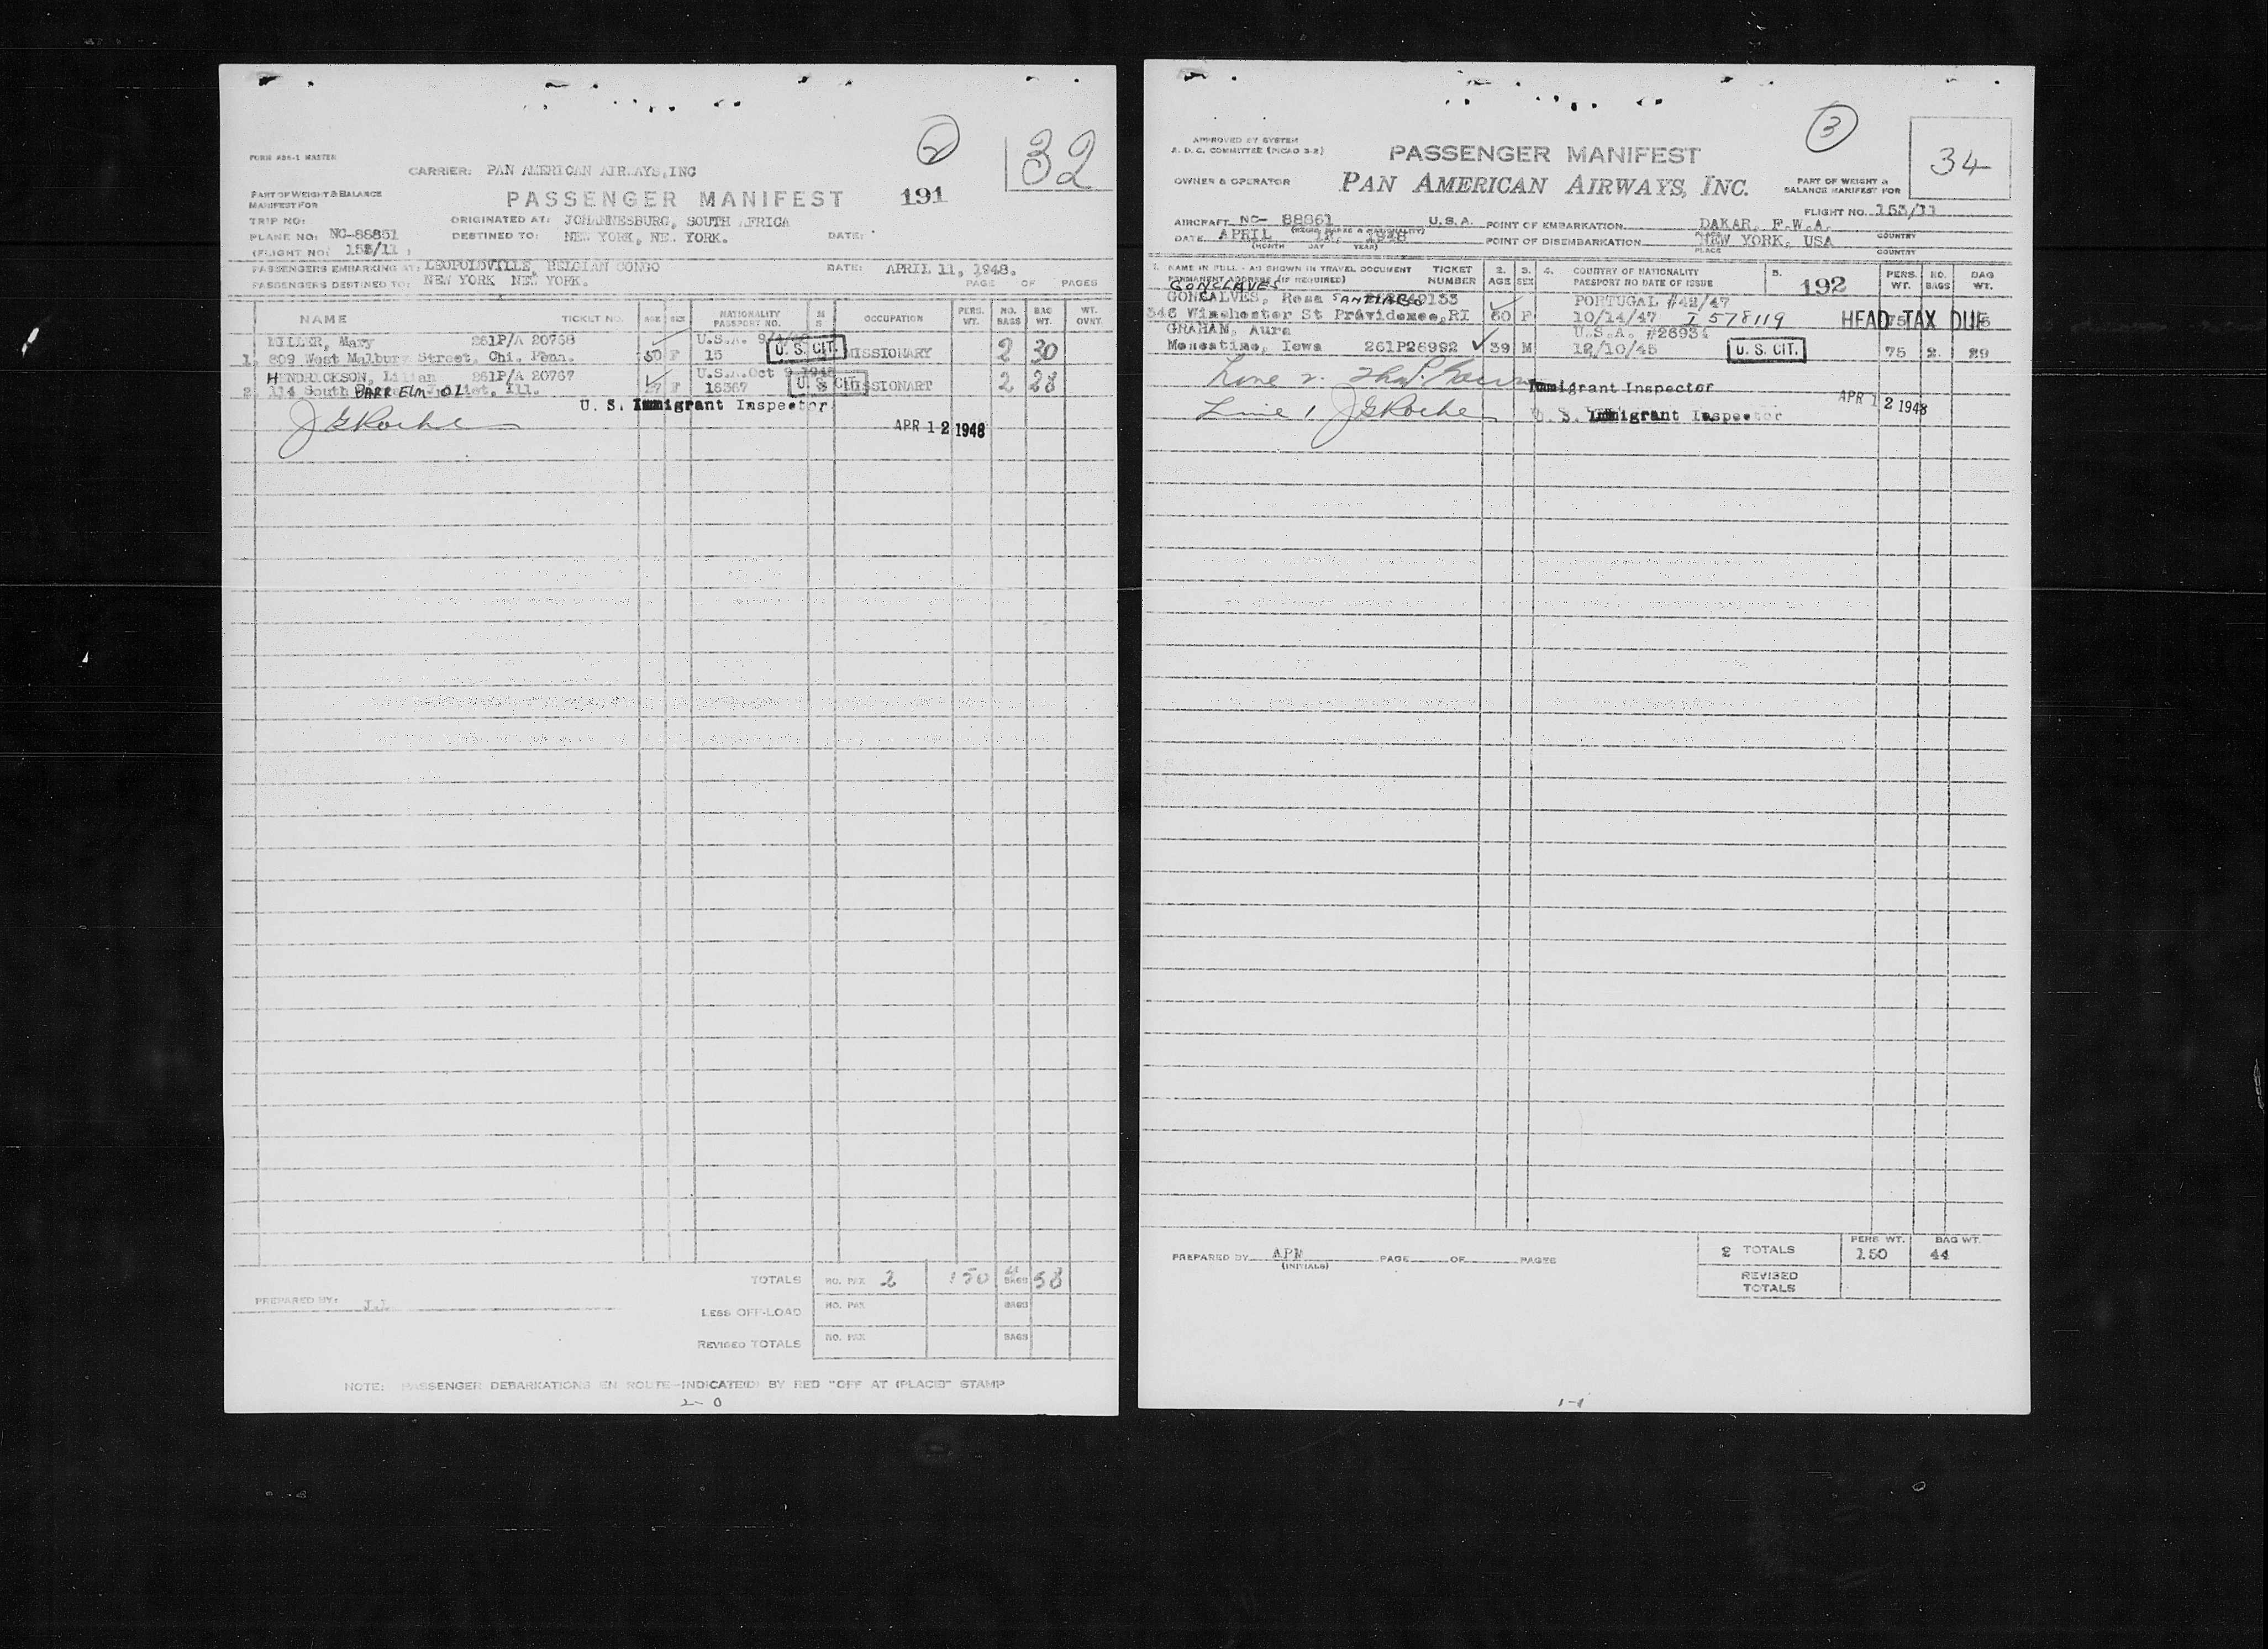 2
32
FORM ASE-1 MASTER
CARRIER: PAN AMERICAN AIRWAYS, INC
PART OF WEIGHT & BALANCE
MANIFEST FOR
PASSENGER MANIFEST 191
TRIP NO:
ORIGINATED AT: JOHANNESBURG, SOUTH AFRICA
PLANE NO: NC-88861
DESTINED TO: NEW YORK, NEW YORK. DATE:
(FLIGHT NO: 153/11)
PASSENGERS EMBARKING AT: LEOPOLDVILLE, BELGIAN CONGO DATE: APRIL 11, 1948.
PASSENGERS DESTINED TO: NEW YORK NEW YORK. PAGE OF PAGES
NAME TICKET NO. AGE SEX NATIONALITY PASSPORT NO. M S OCCUPATION PERS. WT. NO. BAGS BAG WT. WT. OVNT.
MILLER, Mary 261P/A 20768 U.S.A.
1. 809 West Malbury Street, Chi. Penn. 50 F 15 U.S. CIT. MISSIONARY 2 30
HENDRICKSON, Lilian 261P/A 20767 U.S.A. Oct 9 1945
2. 114 South PARK ELM JOLiet, Ill. F 16367 U.S. CIT. MISSIONART 2 28
U. S. Immigrant Inspector
J G Roche
APR 12 1948
TOTALS NO. PAX 2 150 BAGS 58
PREPARED BY: J.L.
LESS OFF-LOAD NO. PAX BAGS
REVISED TOTALS NO. PAX BAGS
NOTE: PASSENGER DEBARKATIONS EN ROUTE-INDICATED BY RED "OFF AT (PLACE)" STAMP
2-0
3
34
APPROVED BY SYSTEM
A. D. C. COMMITTEE (PICAO 3-2)
PASSENGER MANIFEST
OWNER & OPERATOR PAN AMERICAN AIRWAYS, INC.
PART OF WEIGHT &
BALANCE MANIFEST FOR
FLIGHT NO. 153/11
AIRCRAFT NC- 88861 U.S.A. POINT OF EMBARKATION DAKAR, F.W.A.
DATE APRIL 12, 1948 POINT OF DISEMBARKATION NEW YORK, USA
(MONTH DAY YEAR) PLACE COUNTRY
1. NAME IN FULL - AS SHOWN IN TRAVEL DOCUMENT TICKET NUMBER 2. AGE 3. SEX 4. COUNTRY OF NATIONALITY 5. PERS. WT. NO. BAGS BAG WT.
PERMANENT ADDRESS (IF REQUIRED) PASSPORT NO DATE OF ISSUE 192
GONCLAVES
GONCALVES, Rosa SANTIAGO PORTUGAL #42/47
346 Winchester St Pråvidence, RI 60 F 10/14/47 I 578119 HEAD TAX DUE 75
GRAHAM, Aura U.S.A. #26934
Moscatine, Iowa 261P26992 39 M 12/10/45 U. S. CIT. 75 2 29
Line 2. Immigrant Inspector
APR 12 1948
Line 1 J G Roche U. S. Immigrant Inspector
PREPARED BY APM PAGE OF PAGES
(INITIALS)
PERS WT. BAG WT.
2 TOTALS 150 44
REVISED
TOTALS
1-1